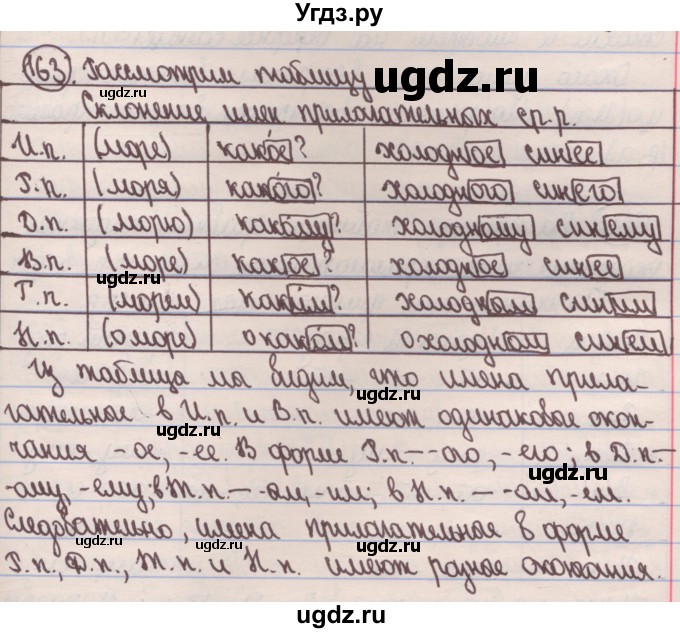 Угдз.ру
163. Рассмотрим таблицу
ugdz.ru
Склонение имен прилагательных ср.р.
И.п. (море) какое? холодное синее
Р.п. (моря) какого? холодного синего
Д.п. (морю) какому? холодному синему
В.п. (море) какое? холодное синее
Т.п. (морем) каким? холодном синим
П.п. (о море) о каком? о холодном синем
Из таблица ма видим, что имена прила-
гательное в И.п. и В.п. имеют одинаковое окон-
чания -ое, -ее. В форме Р.п. - -ого, -его; в Д.п. -
-ому, -ему; в Т.п. - -ом, -им; в П.п. - -ом, -ем.
Следовательно, имена прилагательное в форме
Р.п., Д.п., Т.п. и П.п. имеют разное окончания.
ugdz.ru
ugdz.ru
ugdz.ru
ugdz.ru
ugdz.ru
ugdz.ru
ugdz.ru
ugdz.ru
ugdz.ru
ugdz.ru